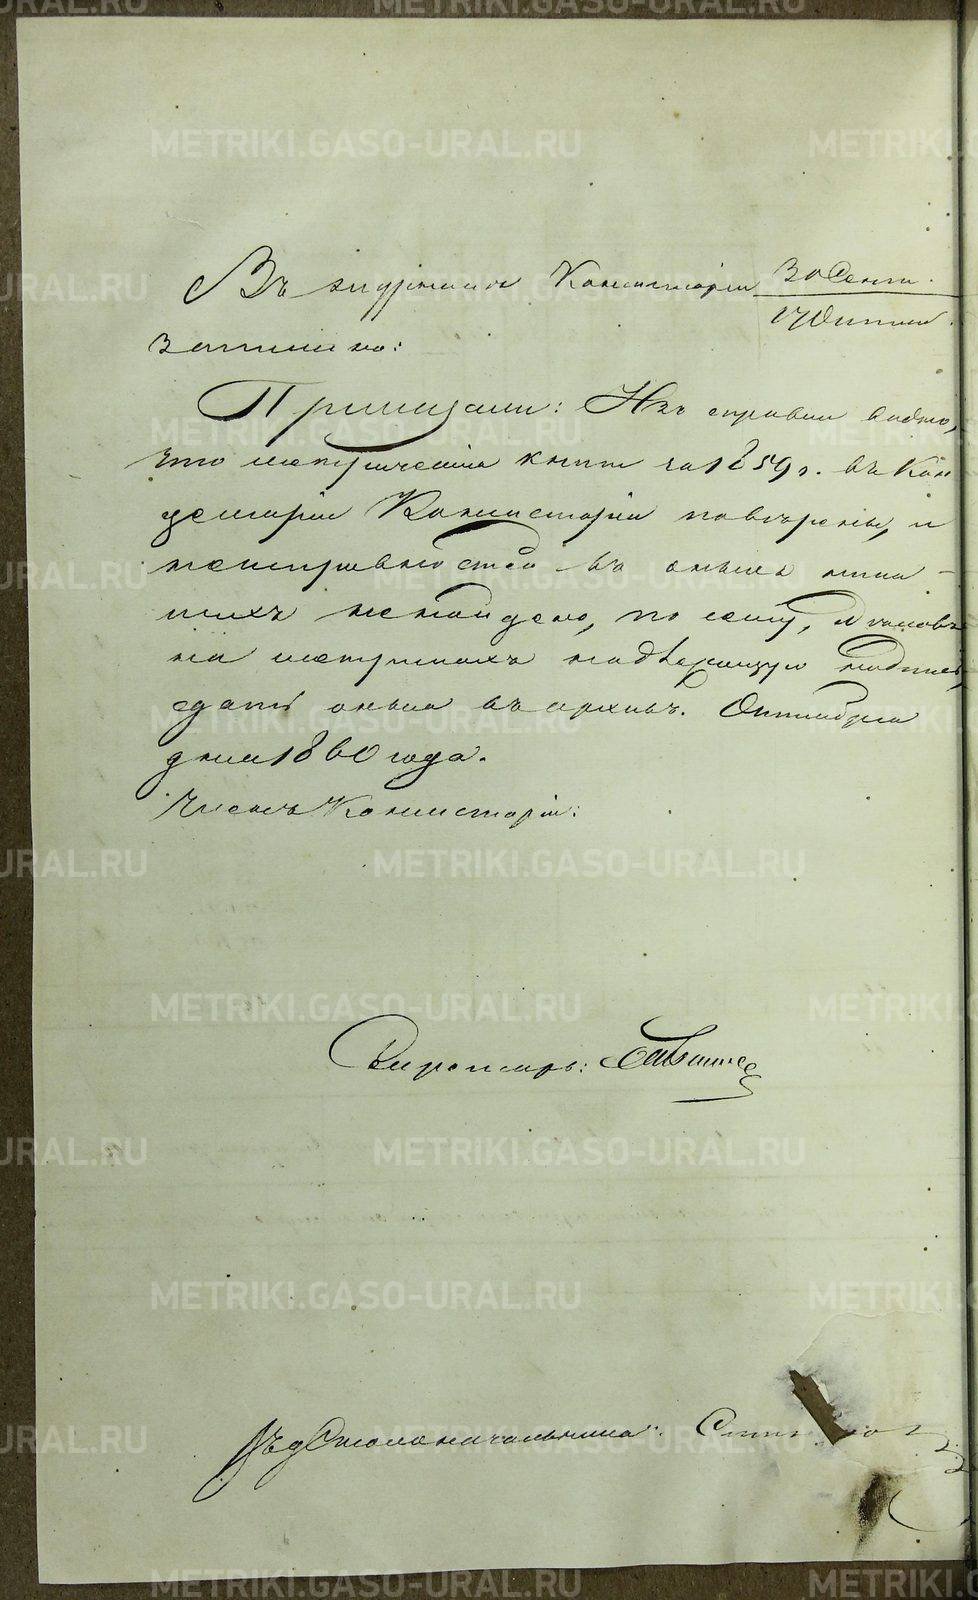 Въ журналѣ Консисторіи 30 Сент.
17 Октяб.
записано:
Приказали: Изъ справки видно,
что метрическія книги за 1859 г. въ Кан
целяріи Консисторіи повѣрены, и
неисправностей въ оныхъ ника
кихъ не найдено, по сему, сдѣлавъ
на метрикахъ надлежащую надпись,
сдать оныя въ архивъ. Октября
дня 1860 года.
Членъ Консисторіи:
Секретарь:
Въ д. Столоначальника:
METRIKI.GASO-URAL.RU